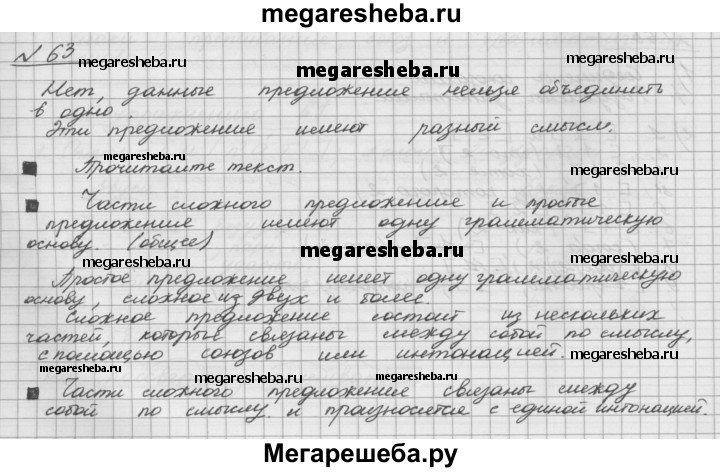 megaresheba.ru
№ 63
megaresheba.ru
megaresheba.ru
megaresheba.ru
Нет, данные предложение нельзя объединить
в одно.
megaresheba.ru
Эти предложение имеют разный смысл.
megaresheba.ru
Прочитайте текст.
megaresheba.ru
Части сложного предложение и простые
предложение имеют одну грамматическую
основу. (общее)
megaresheba.ru
Простое предложение имеет одну грамматическую
основу, сложное из двух и более.
Сложное предложение состоит из нескольких
частей, которые связаны между собой по смыслу,
с помощью союзов или интонацией.
megaresheba.ru
megaresheba.ru
megaresheba.ru
Части сложного предложение связаны между
собой по смыслу и произносятся с единой интонацией.
Мегарешеба.ру